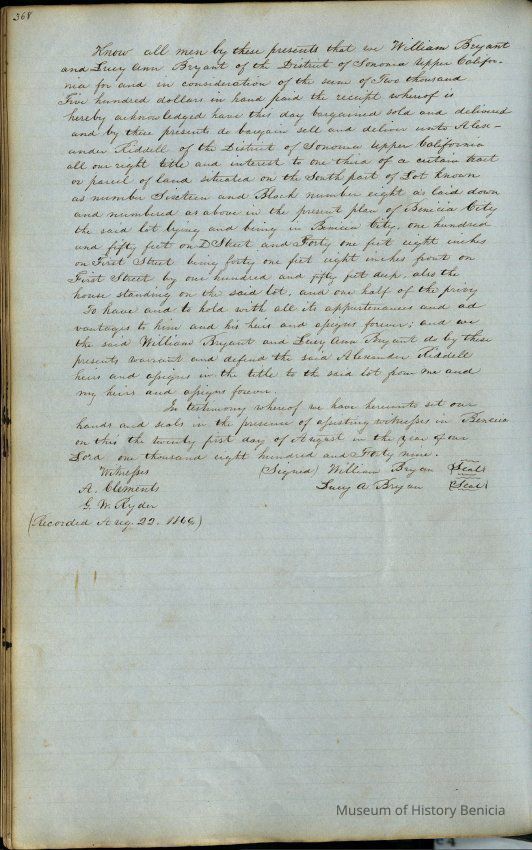 368
Know all men by these presents that we William Bryant
and Lucy Ann Bryant of the District of Sonoma Upper Califor-
nia for and in consideration of the sum of Two thousand
Five hundred dollars in hand paid the receipt whereof is
hereby acknowledged have this day bargained sold and delivered
and by these presents do bargain sell and deliver unto Alex-
ander Riddell of the District of Sonoma Upper California
all our right title and interest to one third of a certain tract
or parcel of land situated on the South part of Lot known
as number Sixteen and Block number eight as laid down
and numbered as above in the present plan of Benicia City
the said lot lying and being in Benicia City, one hundred
and fifty feet on D Street and Forty one feet eight inches
on First Street being forty one feet eight inches front on
First Street by one hundred and fifty feet deep, also the
house standing on the said lot, and one half of the privy
To have and to hold with all its appurtenances and ad
vantages to him and his heirs and assigns forever; and we
the said William Bryant and Lucy Ann Bryant do by these
presents warrant and defend the said Alexander Riddell
heirs and assigns in the title to the said lot from me and
my heirs and assigns forever.
In testimony whereof we have hereunto set our
hands and seals in the presence of attesting witnesses in Benicia
on this the twenty first day of August in the year of our
Lord one thousand eight hundred and Forty nine.
Witnesses (Signed) William Bryan (Seal)
A. Clements Lucy A Bryan (Seal)
G. W. Ryder
(Recorded Aug. 22. 1866)
Museum of History Benicia